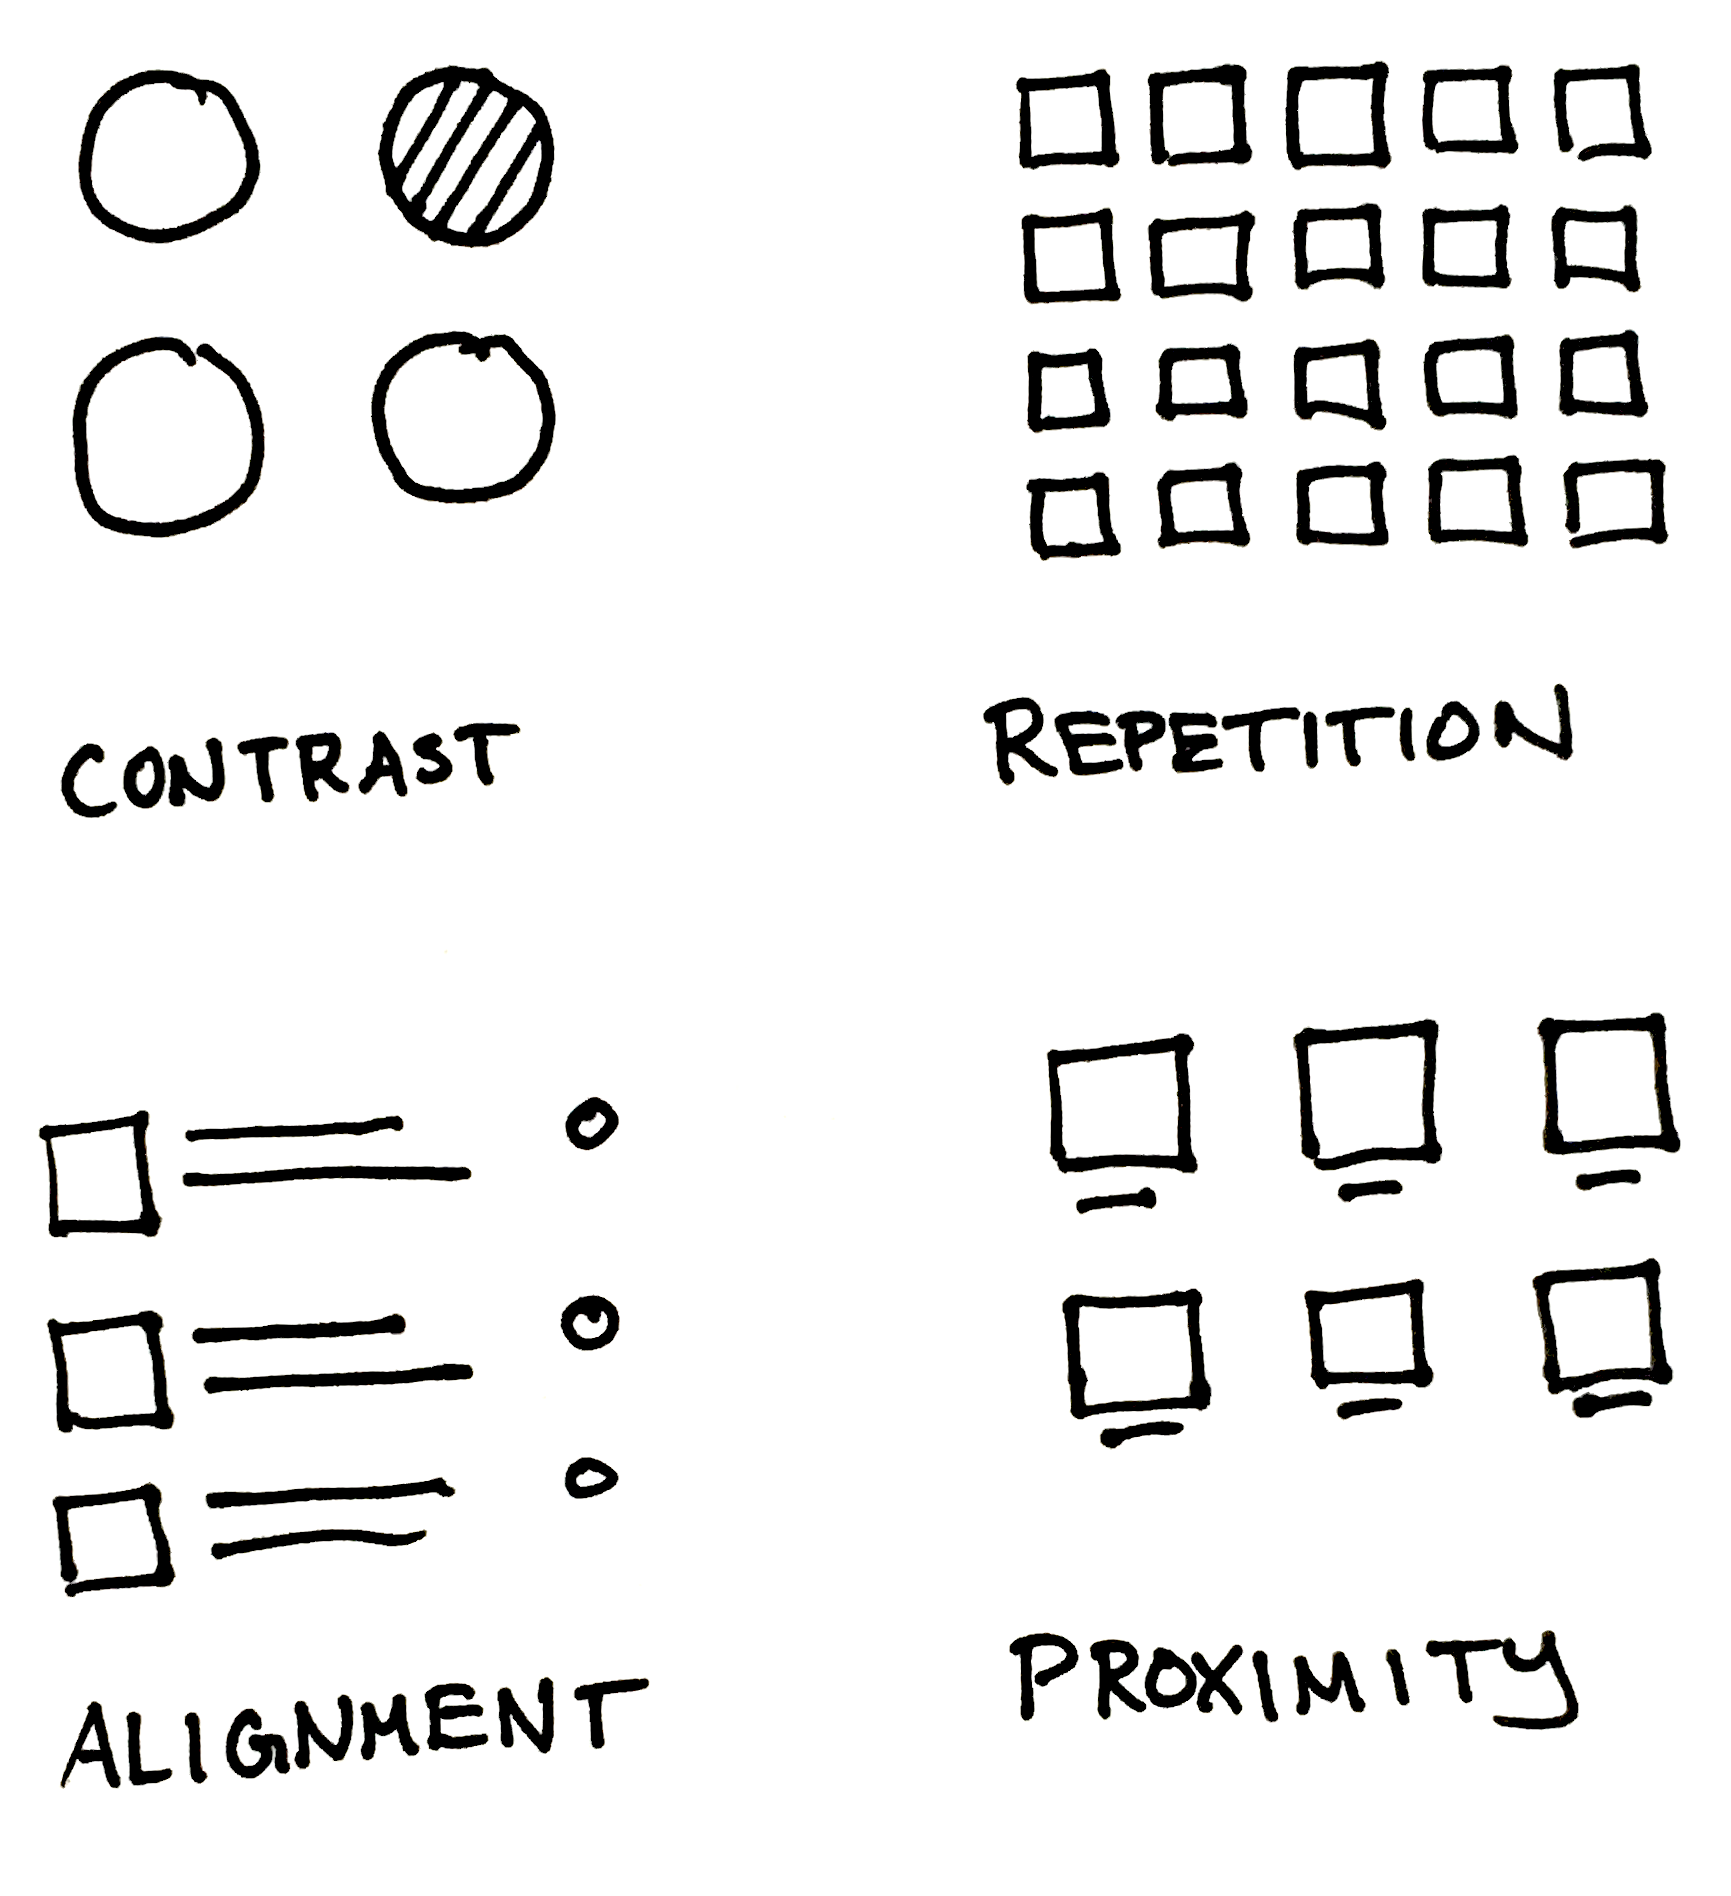 CONTRAST
REPETITION
ALIGNMENT
PROXIMITY